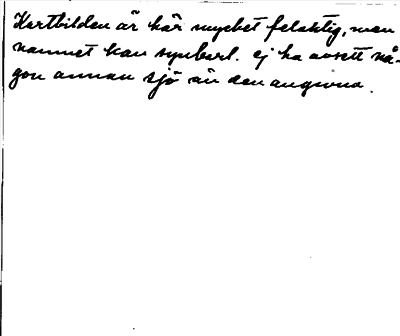 Kartbilden är här mycket felaktig, men
namnet kan synbarl. ej ha avsett nå-
gon annan sjö än den angivna.